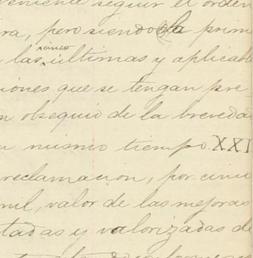 veniente seguir el orden
ra, pero siendo la prim
las únicas últimas y aplicabl
iones que se tengan pre
n obsequio de la brevedad
mismo tiempo XXI
reclamacion, por cinc
mil, valor de las mejoras
tadas y valorizadas de